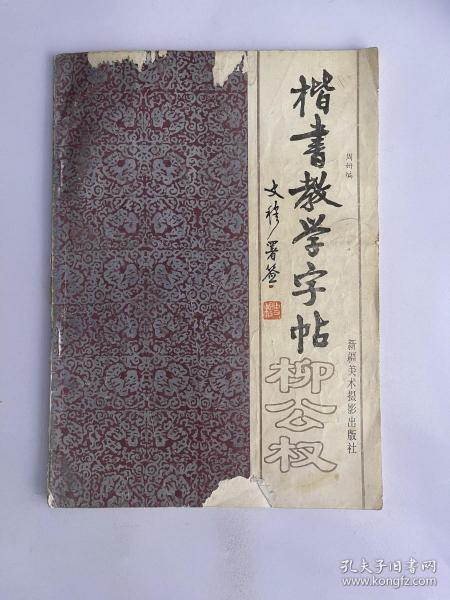 楷書教学字帖
柳公权
周卅编
文穆署签
新疆美术摄影出版社
孔夫子旧书网
www.kongfz.com